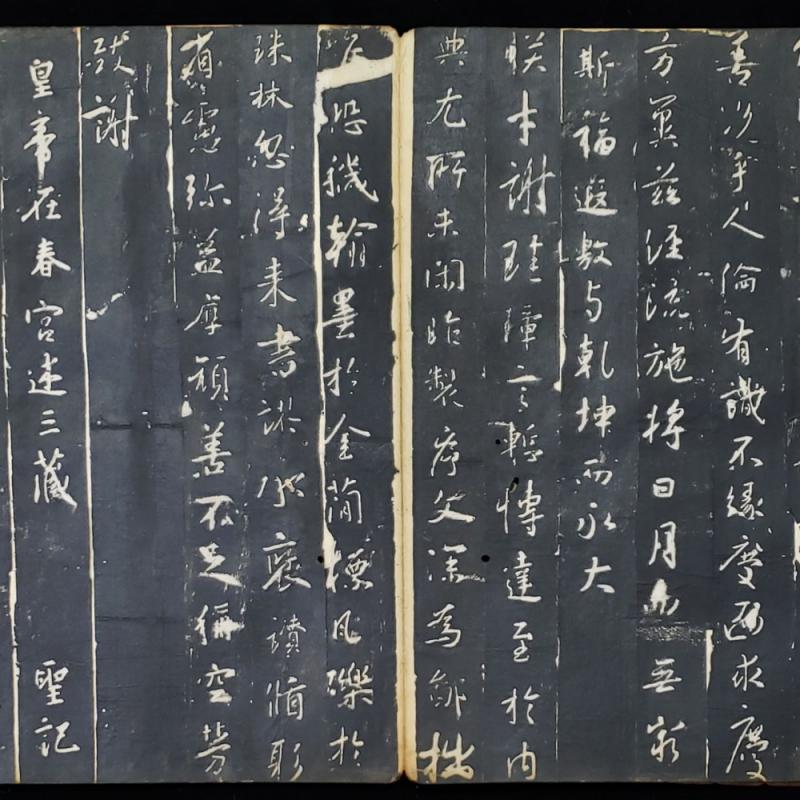 善況乎人倫有識不緣慶而求慶
方冀茲經流施將日月而無窮
斯福遐敷與乾坤而永大
朕才謝珪璋言慚博達至於內
典尤所未閑昨製序文深為鄙拙
唯恐穢翰墨於金簡標瓦礫於
珠林忽得來書謬承褒讚循躬
省慮彌益厚顏善不足稱空勞
致謝
皇帝在春宮述三藏 聖記